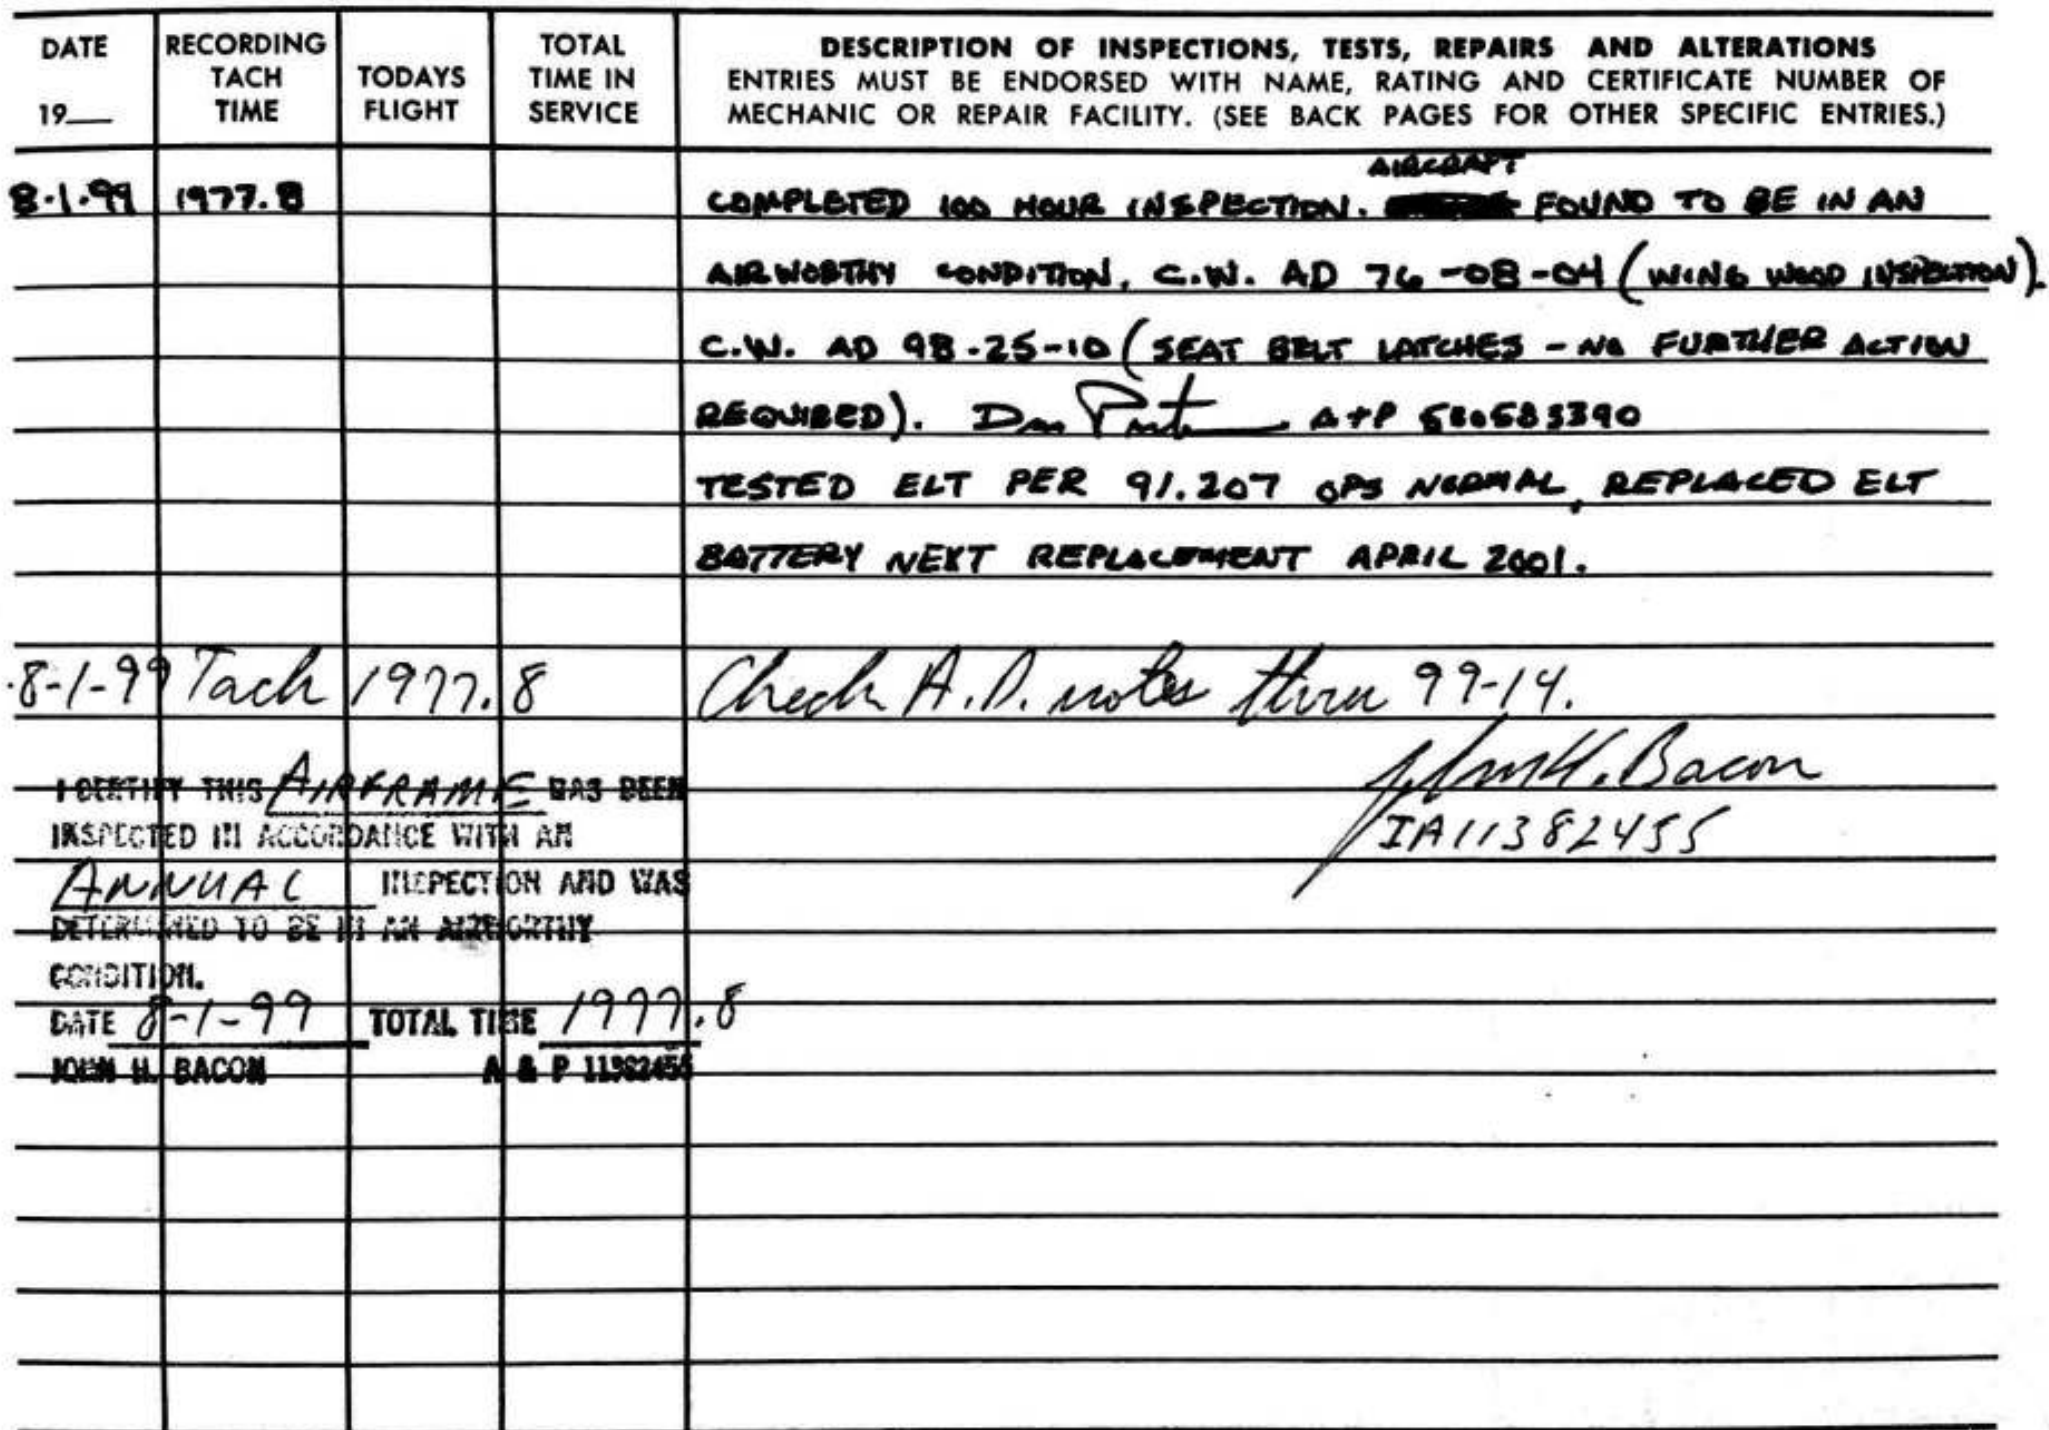 DATE
19__
RECORDING
TACH
TIME
TODAYS
FLIGHT
TOTAL
TIME IN
SERVICE
DESCRIPTION OF INSPECTIONS, TESTS, REPAIRS AND ALTERATIONS
ENTRIES MUST BE ENDORSED WITH NAME, RATING AND CERTIFICATE NUMBER OF
MECHANIC OR REPAIR FACILITY. (SEE BACK PAGES FOR OTHER SPECIFIC ENTRIES.)
AIRCRAFT
8-1-99 1977.8 COMPLETED 100 HOUR INSPECTION. FOUND TO BE IN AN
AIRWORTHY CONDITION, C.W. AD 76-08-04 (WING WOOD INSPECTION).
C.W. AD 98-25-10 (SEAT BELT LATCHES - NO FURTHER ACTION
REQUIRED). A+P 560583390
TESTED ELT PER 91.207 OPS NORMAL, REPLACED ELT
BATTERY NEXT REPLACEMENT APRIL 2001.
8-1-99 Tach 1977.8 Check A.D. notes thru 99-14.
John H. Bacon
IA11382455
I CERTIFY THIS AIRFRAME HAS BEEN
INSPECTED IN ACCORDANCE WITH AN
ANNUAL INSPECTION AND WAS
DETERMINED TO BE IN AN AIRWORTHY
CONDITION.
DATE 8-1-99 TOTAL TIME 1977.8
JOHN H. BACON A & P 11382455